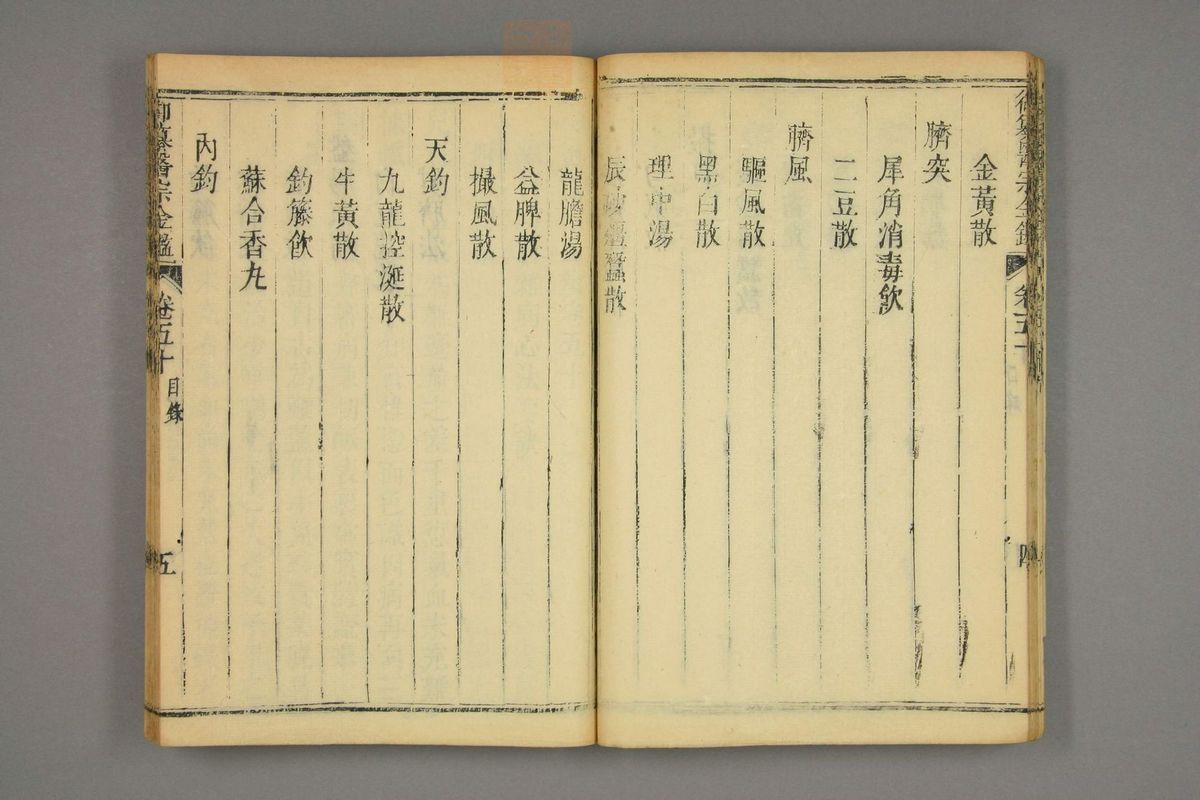 金黃散
臍突
犀角消毒飲
二豆散
臍風
驅風散
黑白散
理中湯
辰砂殭蠶散
龍膽湯
益脾散
撮風散
天釣
九龍控涎散
牛黃散
釣籐飲
蘇合香丸
內釣
御纂醫宗金鑑
卷五十
目錄
五